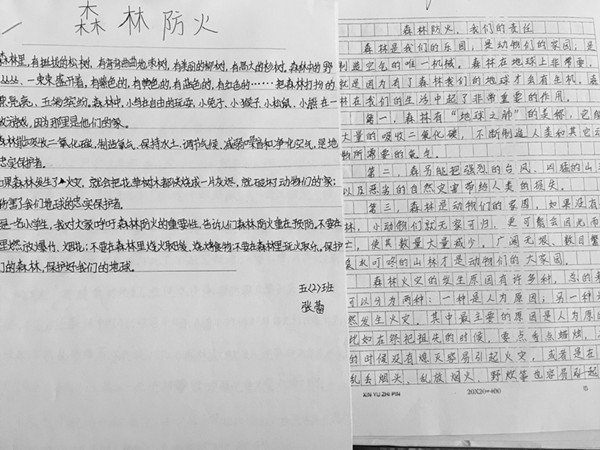 森林防火
森林里,有挺拔的松树,有弯弯曲曲地枣树,有美丽的柳树,有高大的杉树。森林中的野
丛丛,一束束盛开着,有紫色的,有黄色的,有蓝色的,有红色的……把森林打扮的
漂漂亮亮,五彩缤纷。森林中,小鸟自由的玩耍,小兔子、小猴子、小松鼠、小熊在一
做游戏,因为那里是他们的家。
森林能吸收二氧化碳,制造氧气,保持水土,调节气候,减弱噪音和净化空气,是地
忠实保护者。
如果森林发生了火灾,就会把花草树木都焚烧成一片灰烬,就破坏动物们的家;
伤害了我们地球的忠实保护者。
是一名小学生,我对大家呼吁森林防火的重要性,告诉人们森林防火重在预防,不要在
里燃放爆竹、烟花;不要在森林里烧火取暖,烧烤食物;不要在森林里玩火取乐。保护
们的森林,保护好我们的地球。
五(2)班
张茜
森林防火,我们的责任
森林是我们的乐园,是动物们的家园,是
制造空气的唯一机械。森林在地球上非常重,
就是因为有了森林我们的地球才会有生机。森
林在我们的生活中起了非常重要的作用。
第一,森林有“地球之肺”的美称,它能
大量的吸收二氧化碳,不断制造人类和其它动
物所需要的氧气。
第二,森林能把强烈的台风、凶猛的山洪
以及恶劣的自然灾害带给人类的损失。
第三,森林是动物们的家园。如果没有森
林,小动物们就无家可归,更可能会因此而
亡,使其数量大量减少。广阔无垠、数目繁
泉水叮咚的山林才是动物们的大家园。
森林火灾的发生原因有许多种,总的来
可以分为两种:一种是人为原因,另一种
然发生火灾。其中最主要的原因是人为原
比如在祭祀祖先的时候,要点香点蜡烛,
的时候没有熄灭容易引起火灾,或者是在
乱丢烟头,乱放烟火、野炊等也容易引起
XIN YU ZHI PIN
20X20=400